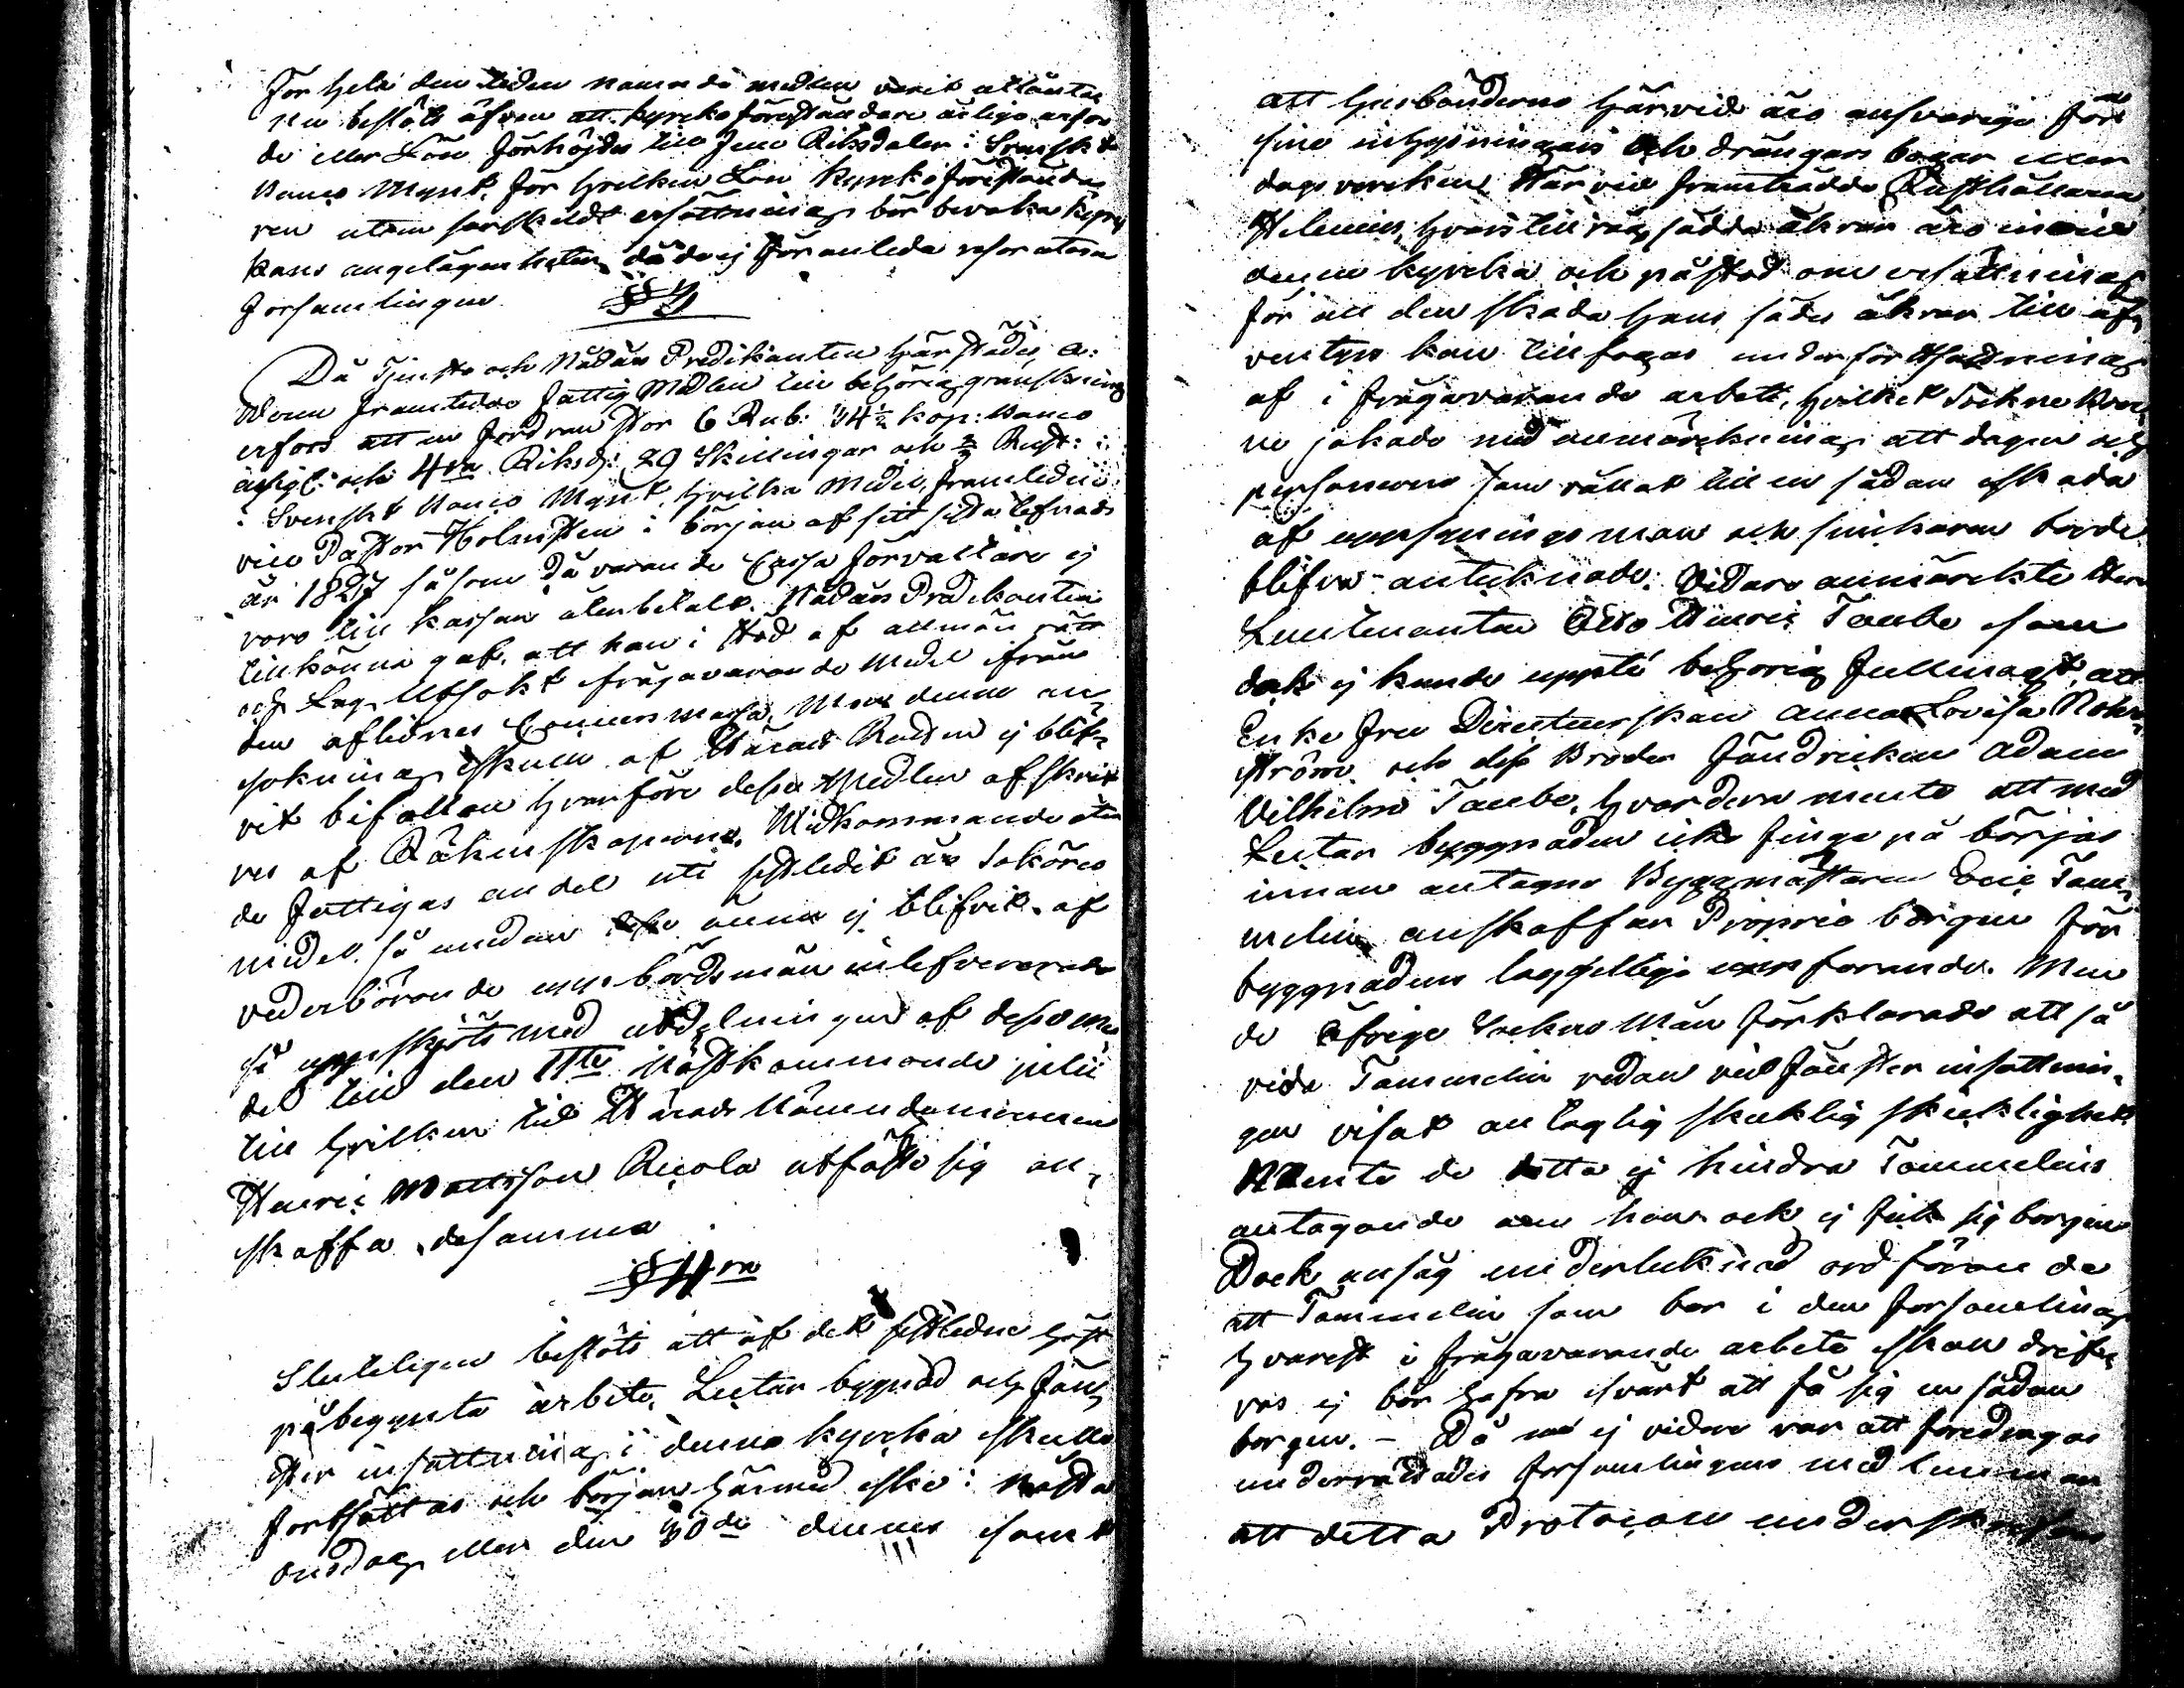 för hela den tiden namnda medlen varit utlånta
nu beslöts äfven att kyrkoföreståndare årliga arfvo
de eller Lön förhöjdes till fem Riksdaler i Svenskt
Banco Mynt, för hvilken Lön kyrkoföreståndar
ren utom särskildt ersättning bör bevaka kyr
kans angelägenheter, då de ej föranleda resor utom
församlingen
§ 3
Då Tjenste och Nådårs Predikanten härstädes, A:
Wenn framtedde fattig Medlen till behörig granskning
erfors att en fordran stor 6 Rub: 34½ kop: Banco
assig: och 4ra Riksd: 29 Skillingar och Rust:
i Svenskt Banco Mynt, hvilka medel, framledne
vice Pastor Holmsten i början af sitt sista lefnads
år 1827 såsom då varande Cassa förvaltare ej
voro till kassan återbetalt. Nådårs Predikanten
tillkänna gaf, att han i stöd af allmän rätt
och Lag, Utsökt ifrågavarande medel ifrån
den aflidnes Concurs massa, Men denna an
sökning skulle af Härads Rätten ej blif
vit bifallen hvarföre dessa Medlen afskrif
ves af Räkenskaperna. Widkommande åter
de fattigas andel uti sistledit års Saköres
medel, så emedan desse ännu ej blifvit af
vederbörande uppbördsmän inlefvererade
så uppskjöts med utdelningen af desse me
del till den 11te nästkommande julii
till hvilken tid Härads Nämndemannen
Henric Mattsson Ruola utfäste sig an
skaffa desamma
§ 4ra
Sluteligen beslöts att af det sistledne höst
påbegynta arbete, Lectar bygnad och fön
ster insättning i denna kyrcka skulle
fortsättas och början härmed ske: nästa
onsdag eller den 30de dennes samt
att husbönderne härvid äro ansvarige för
sine inhysningars och drängars bogar eller
dagsverken. Härvid framträdde Rusthållaren
Helenius, hvars till råg sådda åkrar äro invid
denna kyrcka och påstod om ersättning
för all den skada hans sådda åkrar till äf
ventyrs kan tillfogas under fortsättning
af i frågavarande arbete, hvilket Sockne Män
ne jakade med anmärckning att dagen och
personerne som vållat till en sådan skada
af uppsyningsman och sinkaren borde
blifva antecknade. Vidare anmärckte Herr
Lieutenanten Otto Henric Taube som
dock ej kunde uppte behörig fullmagt, att
Enke fru Directeurskan Anna Lovisa Rohr
ström och dess Broder fändricken Adam
Vilhelm Taube, hvardera mente att med
Lectar byggnaden icke finge på börjas
innan antagne Byggmästaren Eric Tam
melin anskaffar Proprie borgen för
byggnadens laggilliga uppforande. Men
de öfrige Sockne Män förklarade att så
vida Tammelin redan vid fönster insättnin
gen visat antaglig skicklig skicklighet
Mente de detta ej hindra Tammelins
antagande om han ock ej fick sig borgen
Dock ansåg undertecknad ordförande
att Tammelin som bor i den församling
hvarest i frågavarande arbete skall drif
vas ej bör hafva svårt att få sig en sådan
borgen. - Då nu ej vidare var att foredragas
underrättades församlingens medlemmar
att detta Protocoll underskrifves